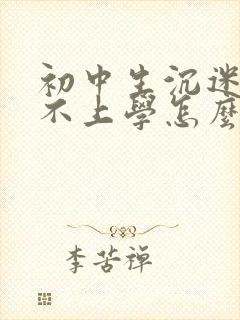 初中生沉迷
不上學怎麼
李苦禪